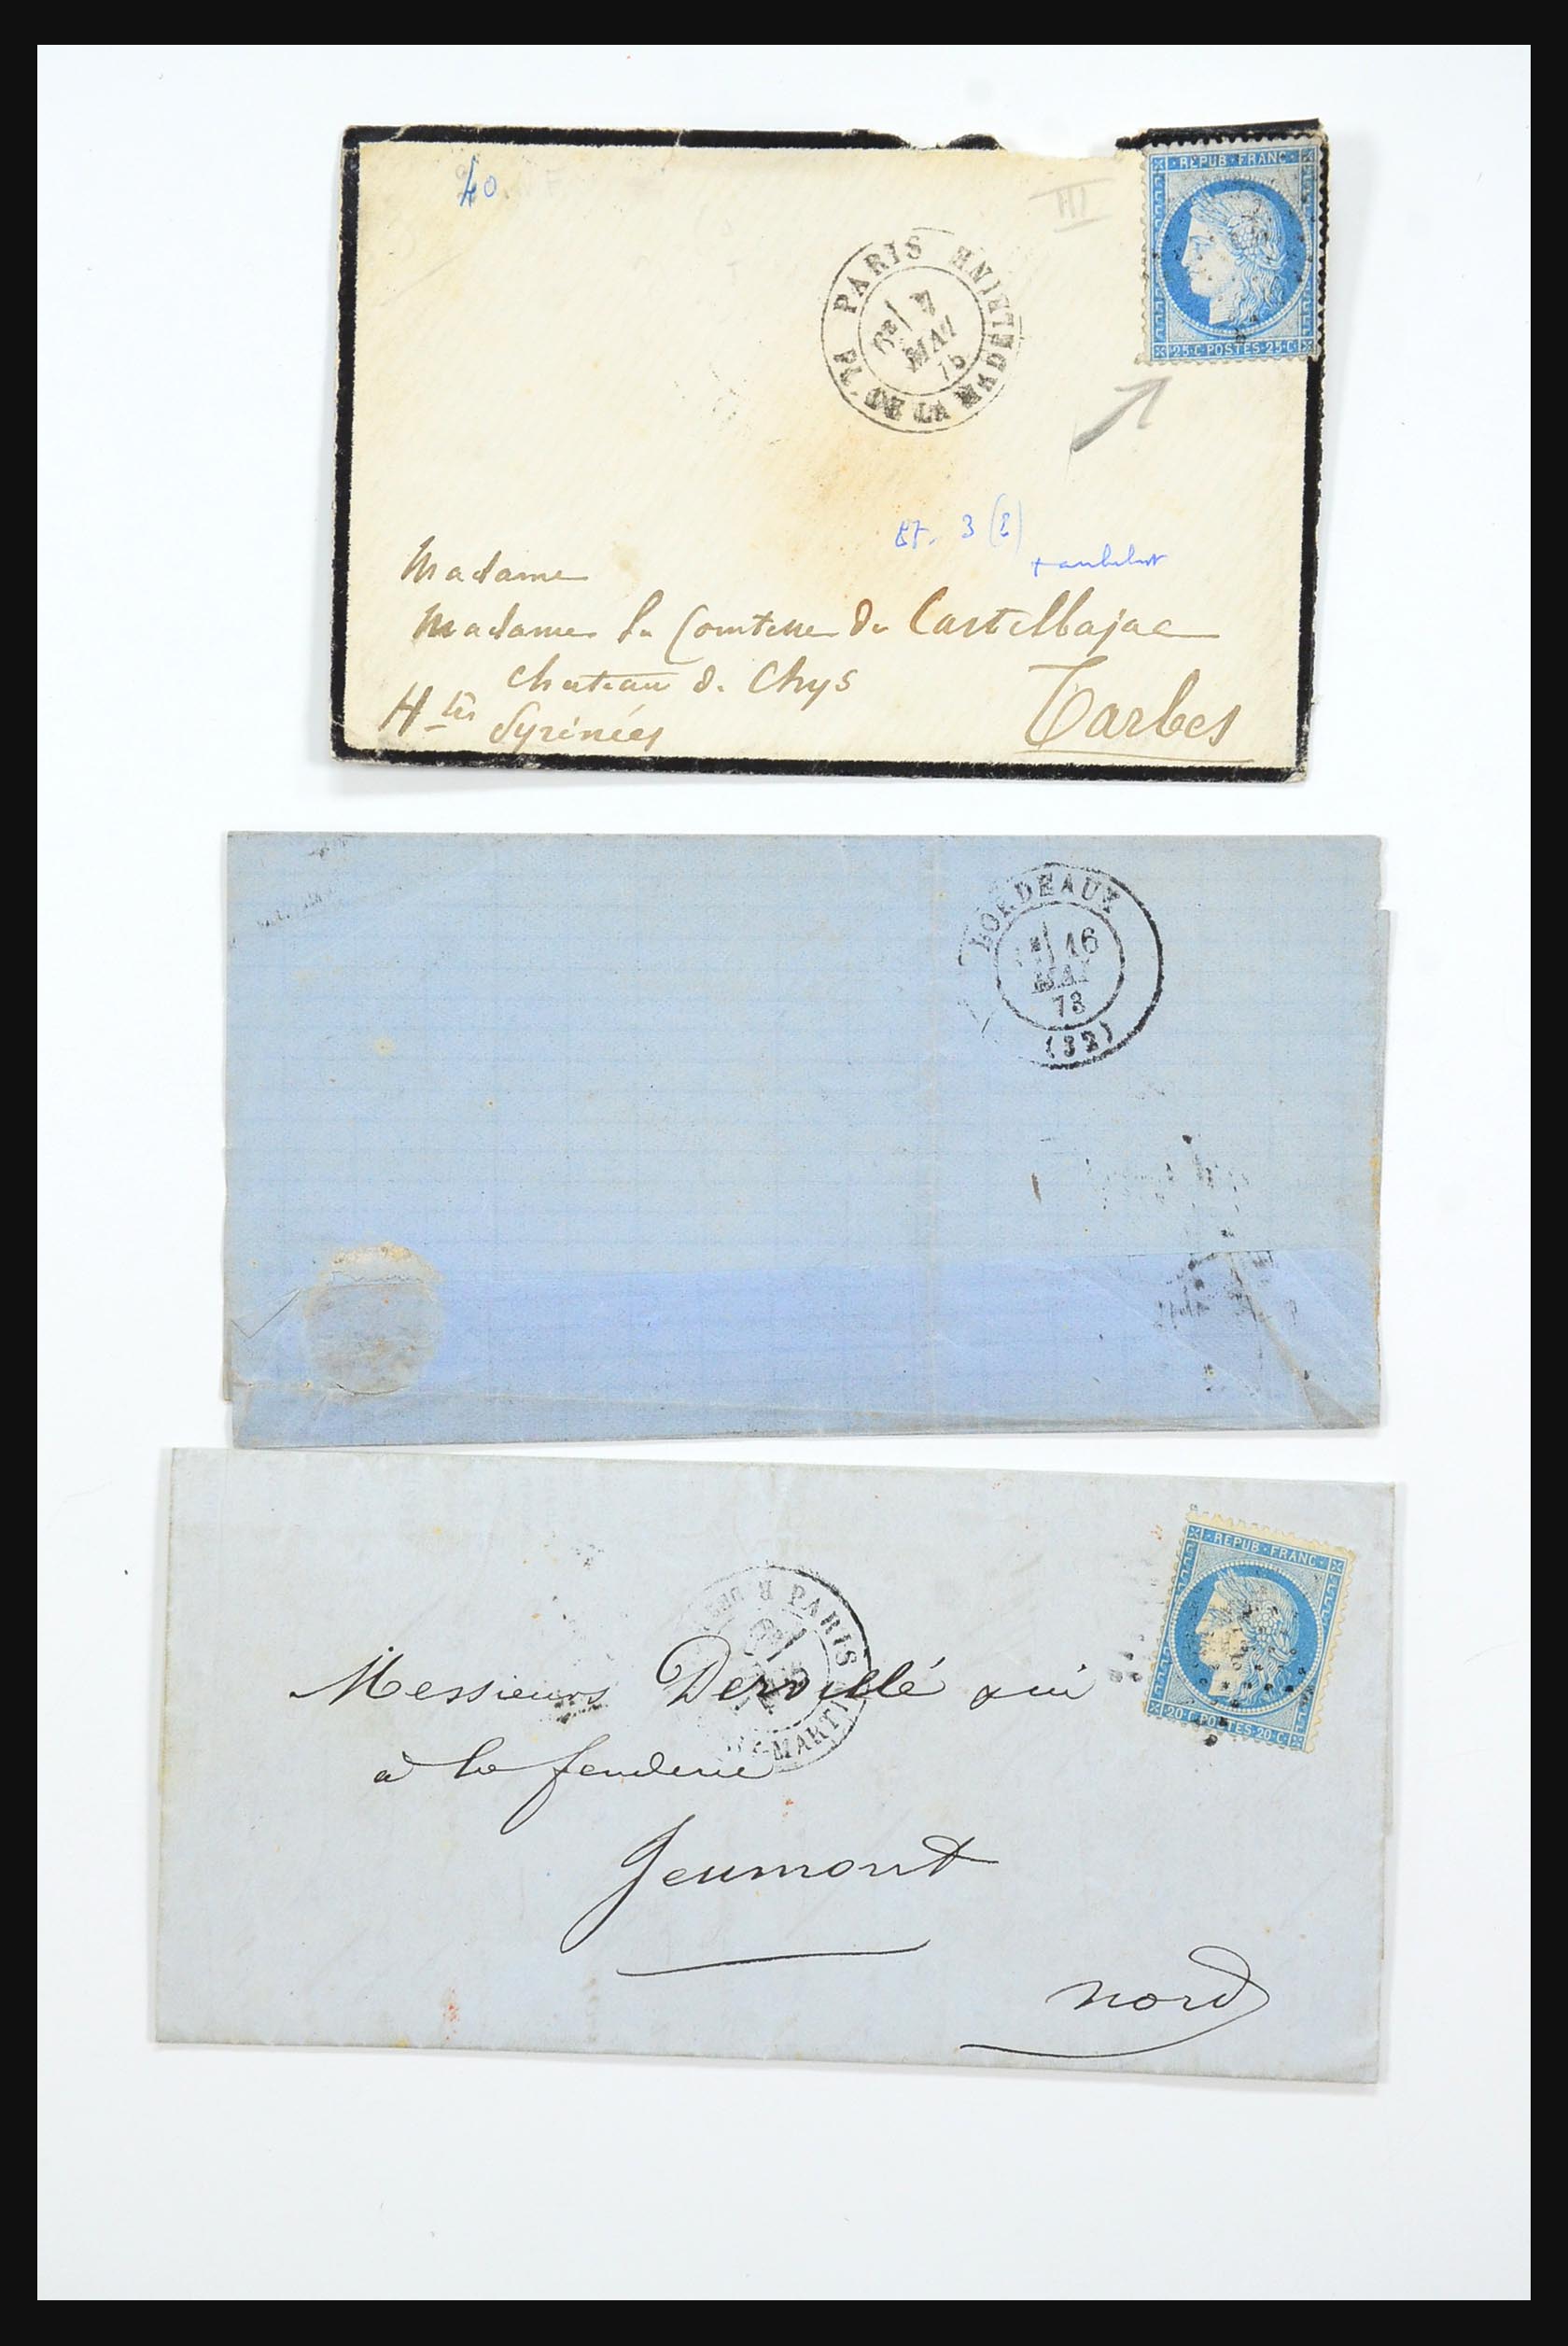 40
III
REPUB·FRANC
25·C POSTES·25·C
PARIS PL. DE LA MADELEINE
6E 7
MAI
75
3 (2)
Madame
Madame la Comtesse de Castelbajac
Chateau de Chys
Htes Pyrénées
Tarbes
BORDEAUX
16
MAI
73
(32)
REPUB·FRANC
20·C POSTES·20·C
PARIS
MARTIN
Messieurs Dervillé &
à la fenderie
Jeumont
Nord